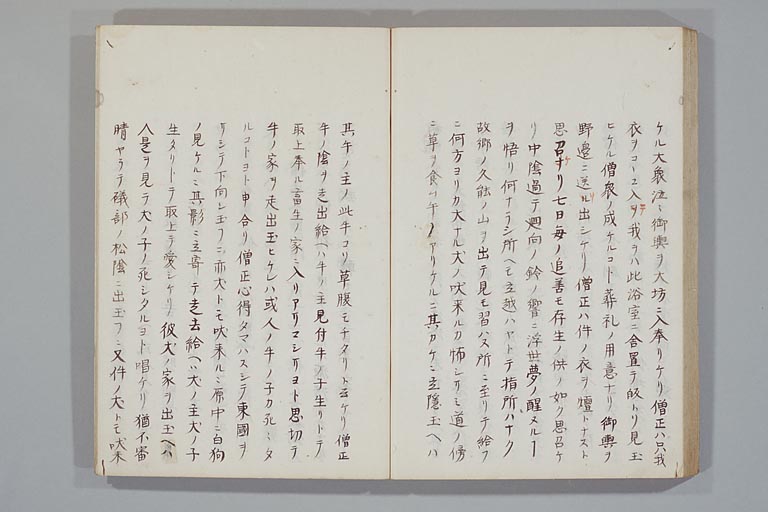 ケル大衆泣々御輿ヲ大坊ニ入奉リケリ僧正ハ只我
衣ヲコソ入ヲ我ヲハ此浴室ニ合置テ皈トリ見玉
ヒケル僧衆ノ成ケルコト葬礼ノ用意ナリ御輿ヲ
野邊ニ送リ出シケリ僧正ハ件ノ衣ヲ壇トナスト
思召ケリ七日毎ノ追善モ存生ノ供ノ如ク思召ケ
リ中陰過テ廻向ノ鈴ノ響ニ浮世夢ノ醒メルー
ヲ悟リ何ナラシ所ヘモ立越ハヤトテ指所ハナク
故郷ノ久能ノ山ヲ出テ見モ習ハヌ所ニ至リテ給フ
ニ何方ヨリカ大ナル犬ノ吠来ルカ怖シサニ道ノ傍
ニ草ヲ食ム牛ノアリケルニ其カケニ立隠玉ヘハ
其牛ノ主ノ此牛コソ草腹モチタリト云ケリ僧正
牛ノ陰ヲ走出給ヘハ牛ノ主見付牛ノ子生リトテ
取上奉ル畜生ノ家ニ入リアリマシサヨト思切テ
牛ノ家ヲ走出玉ヒケレハ或人ノ牛ノ子カ死ニタ
ルコトヨト申合リ僧正心得タマハスシテ東國ヲ
サシテ下向シ玉フニ亦犬トモ吠来ルニ席中ニ白狗
ノ見ケルニ其影ニ立寄テ走去給ヘハ犬ノ主犬ノ子
生タリトテ取上テ愛シケリ彼犬ノ家ヲ出玉ヘハ
人是ヲ見テ犬ノ子ノ死シタルヨト唱ケリ猶不審
晴ヤラテ礒部ノ松陰ニ出玉フニ又件ノ犬トモ吠来